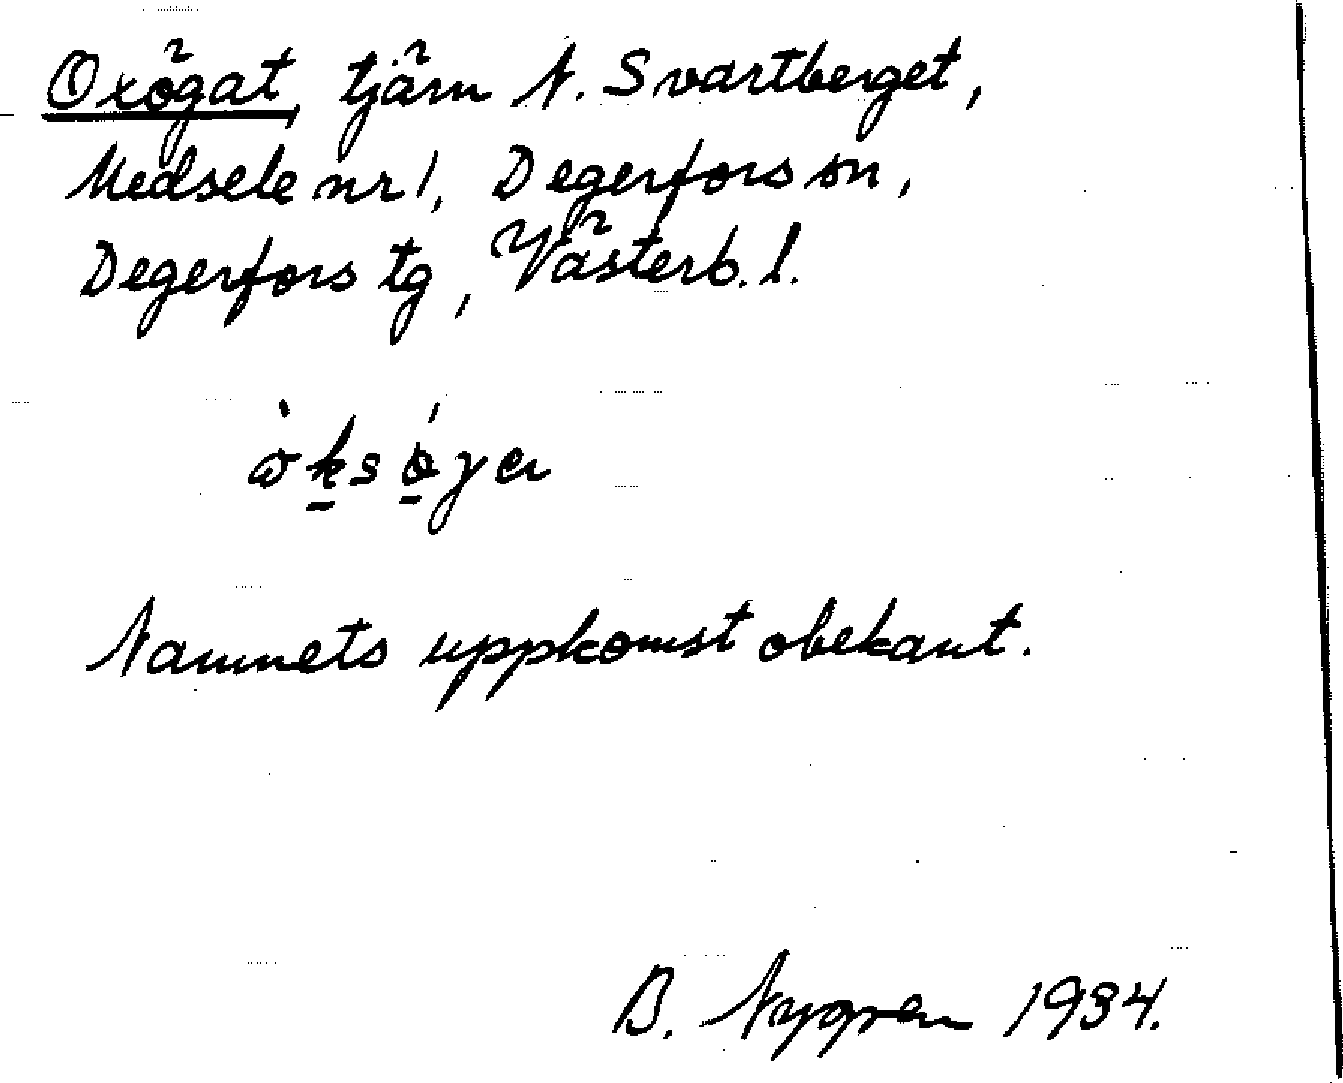 Oxögat, tjärn N. Svartberget,
Medsele nr 1, Degerfors sn,
Degerfors tg, Västerb. l.
Namnets uppkomst obekant.
B. Nygren 1934.